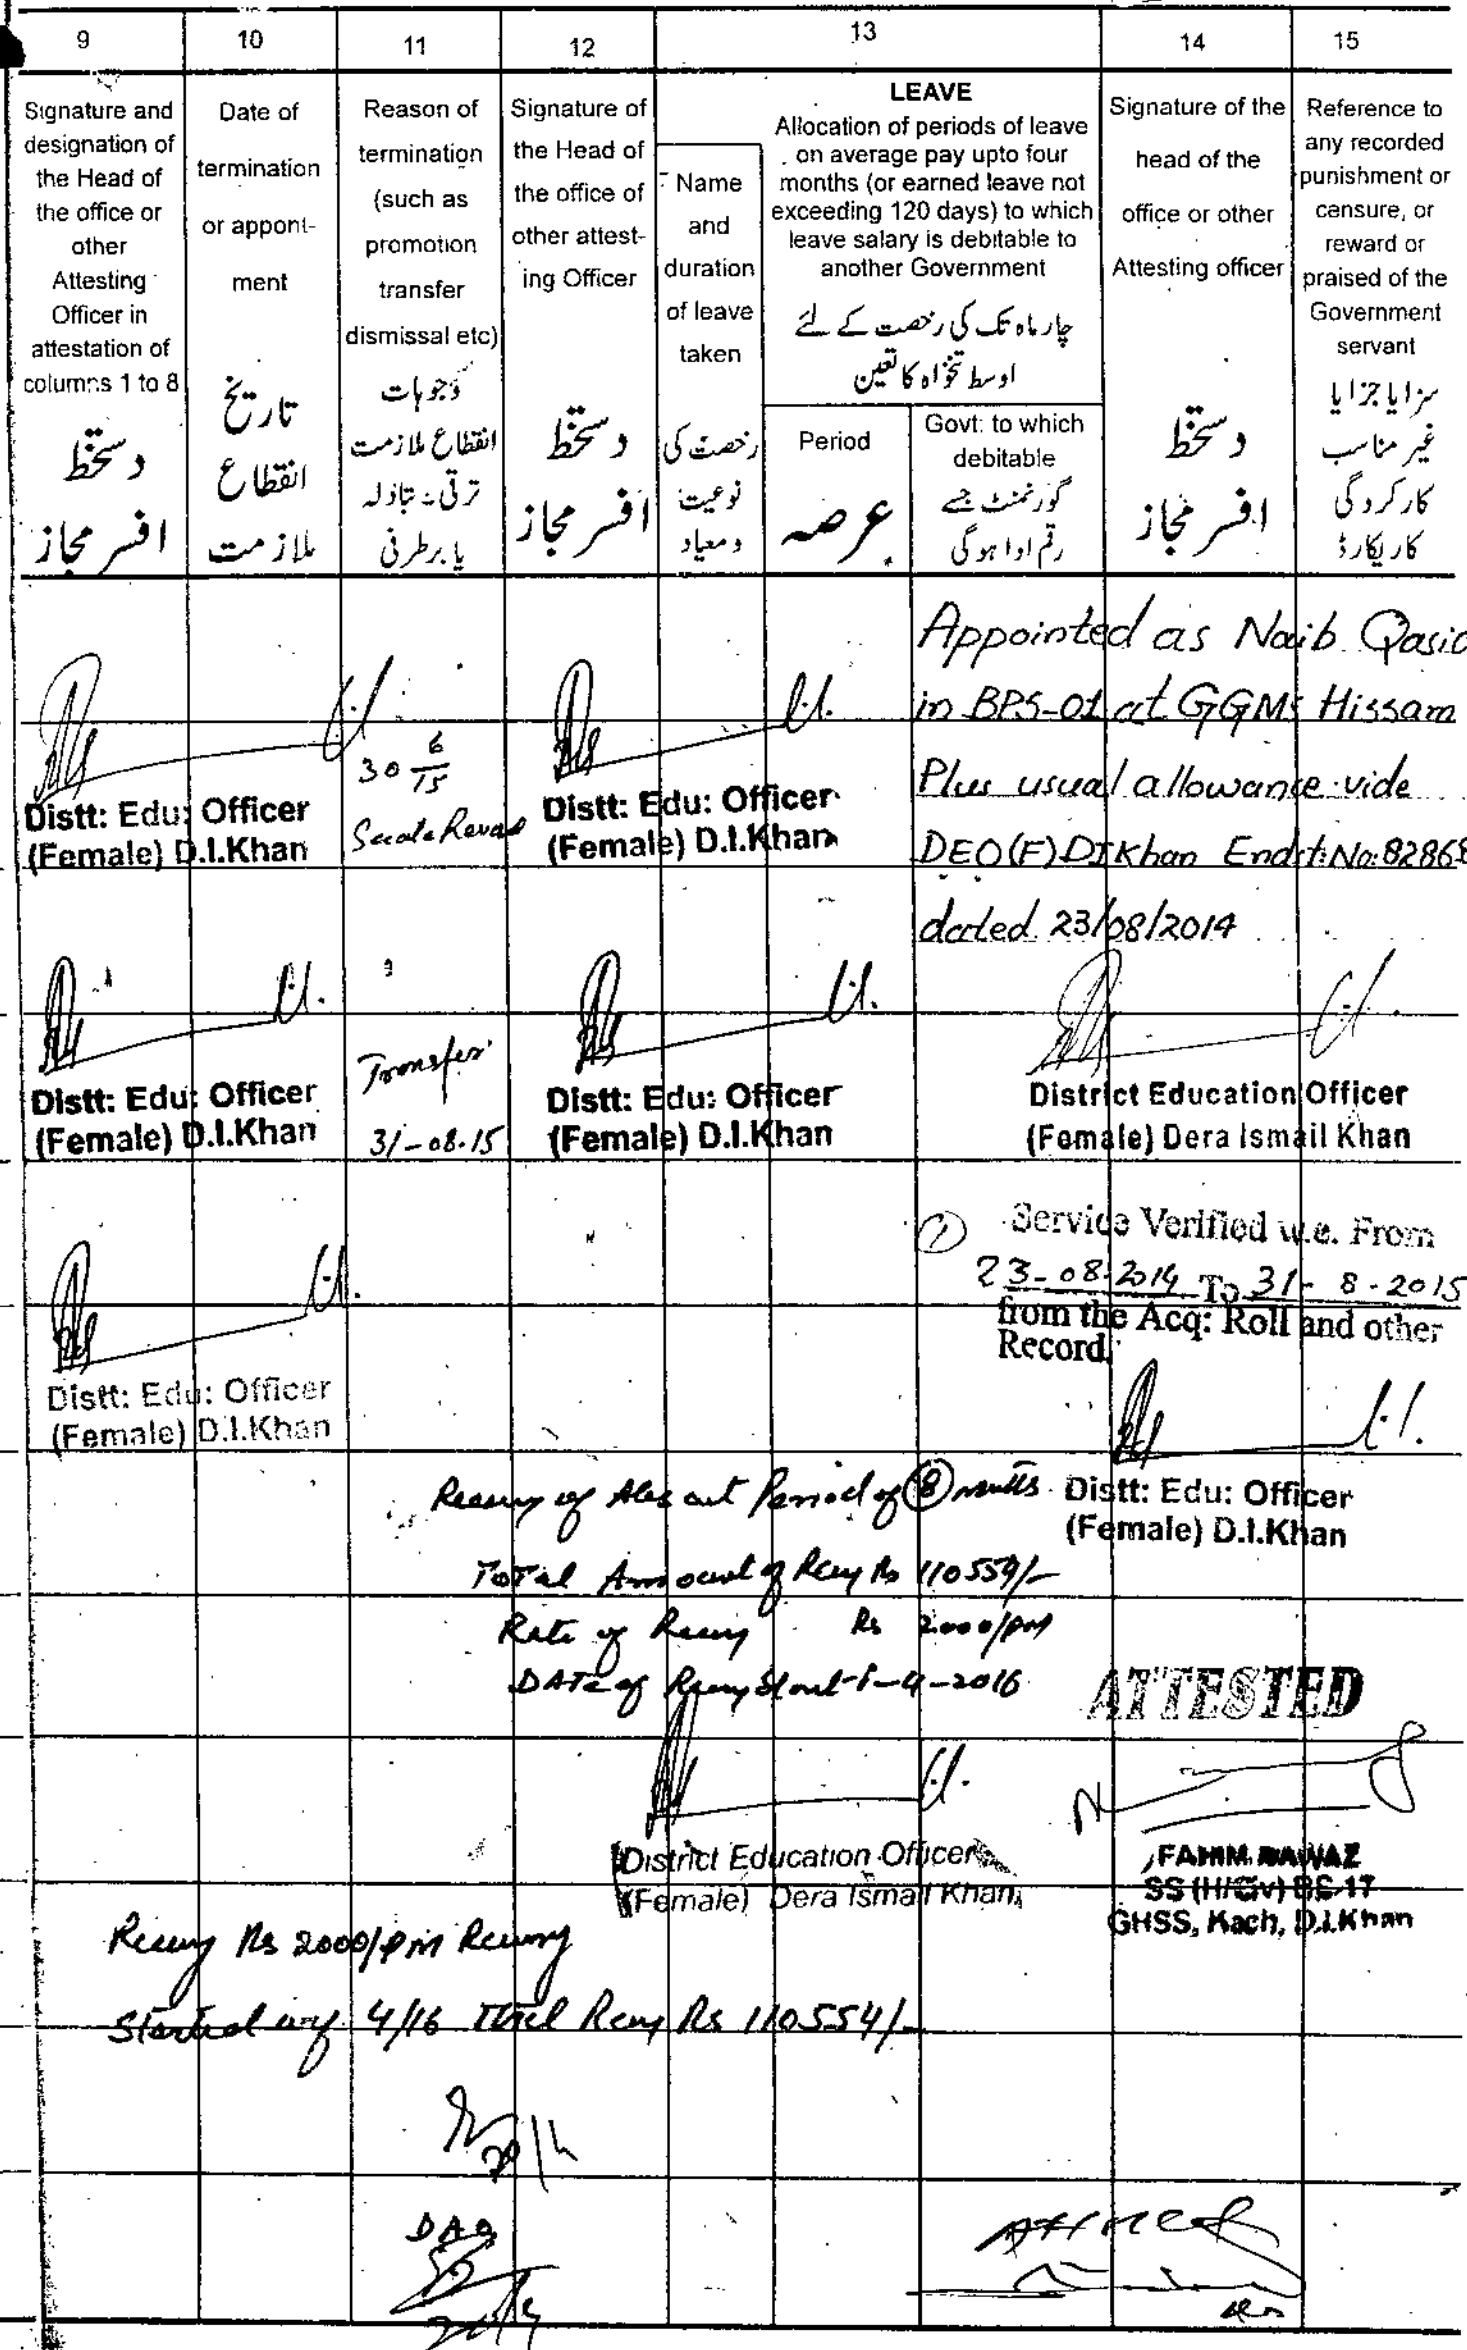 9
10
11
12
13
14
15
Signature and
designation of
the Head of
the office or
other
Attesting
Officer in
attestation of
columns 1 to 8
دستخط
افسر مجاز
Date of
termination
or appont-
ment
تاریخ
انقطاع
ملازمت
Reason of
termination
(such as
promotion
transfer
dismissal etc)
وجوہات
انقطاع ملازمت
ترقی، تبادلہ
یا برطرفی
Signature of
the Head of
the office of
other attest-
ing Officer
دستخط
افسر مجاز
LEAVE
Name
and
duration
of leave
taken
رخصت کی
نوعیت
و معیاد
Allocation of periods of leave
on average pay upto four
months (or earned leave not
exceeding 120 days) to which
leave salary is debitable to
another Government
چار ماہ تک کی رخصت کے لئے
اوسط تنخواہ کا تعین
Period
عرصہ
Govt: to which
debitable
گورنمنٹ جسے
رقم ادا ہوگی
Signature of the
head of the
office or other
Attesting officer
دستخط
افسر مجاز
Reference to
any recorded
punishment or
censure, or
reward or
praised of the
Government
servant
سزا یا جزا یا
غیر مناسب
کارکردگی
کا ریکارڈ
Appointed as Naib Qasid
in BPS-01 at GGMS Hissam
Plus usual allowance vide
DEO(F) DIKhan Endst: No: 82868
dated 23/08/2014
30 6/15
Distt: Edu: Officer
(Female) D.I.Khan
Distt: Edu: Officer
(Female) D.I.Khan
Distt: Edu: Officer
(Female) D.I.Khan
Transfer
31-08-15
Distt: Edu: Officer
(Female) D.I.Khan
District Education Officer
(Female) Dera Ismail Khan
(1) Service Verified w.e. From
23-08-2014 To 31-8-2015
from the Acq: Roll and other
Record.
Distt: Edu: Officer
(Female) D.I.Khan
Distt: Edu: Officer
(Female) D.I.Khan
of Absent Period of (8) months
Total Amount of Recy Rs 110554/-
Rate of Recy Rs 2000/pm
DATE of Recy Start 1-4-2016
ATTESTED
District Education Officer
(Female) Dera Ismail Khan
FAHIM NAWAZ
SS (H/Civ) BS-17
GHSS, Kach, D.I.Khan
Rs 2000/pm
Started wef 4/16 Total Recy Rs 110554/-
DAO
Attested